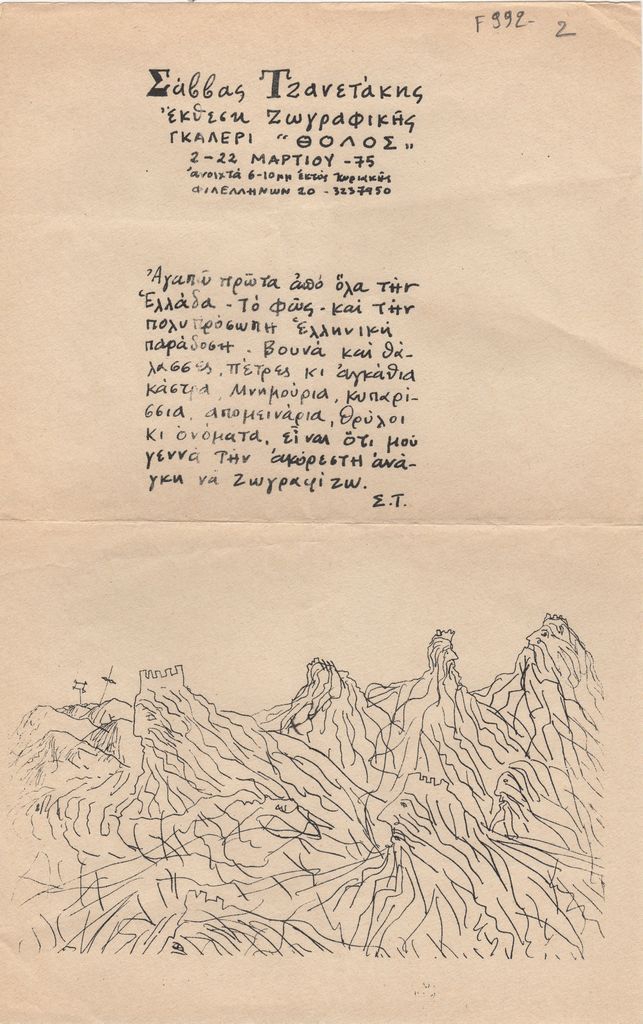 F992- 2
Σάββας Τζανετάκης
Ἔκθεση Ζωγραφικῆς
ΓΚΑΛΕΡΙ "ΘΟΛΟΣ"
2-22 ΜΑΡΤΙΟΥ -75
ἀνοιχτά 6-10μμ ἐκτός Κυριακῆς
ΦΙΛΕΛΛΗΝΩΝ 20 - 3237950
Ἀγαπῶ πρῶτα ἀπό ὅλα τήν
Ἑλλάδα - τό φῶς - καί τήν
πολυπρόσωπη Ἑλληνική
παράδοση. Βουνά καί θά-
λασσες, πέτρες κι ἀγκάθια
κάστρα, Μνημούρια, κυπαρί-
σσια, απομεινάρια, θρύλοι
κι ὀνόματα, εἶναι ὅτι μοῦ
γεννᾶ τήν ἀκόρεστη ἀνά-
γκη νά ζωγραφίζω.
Σ.Τ.